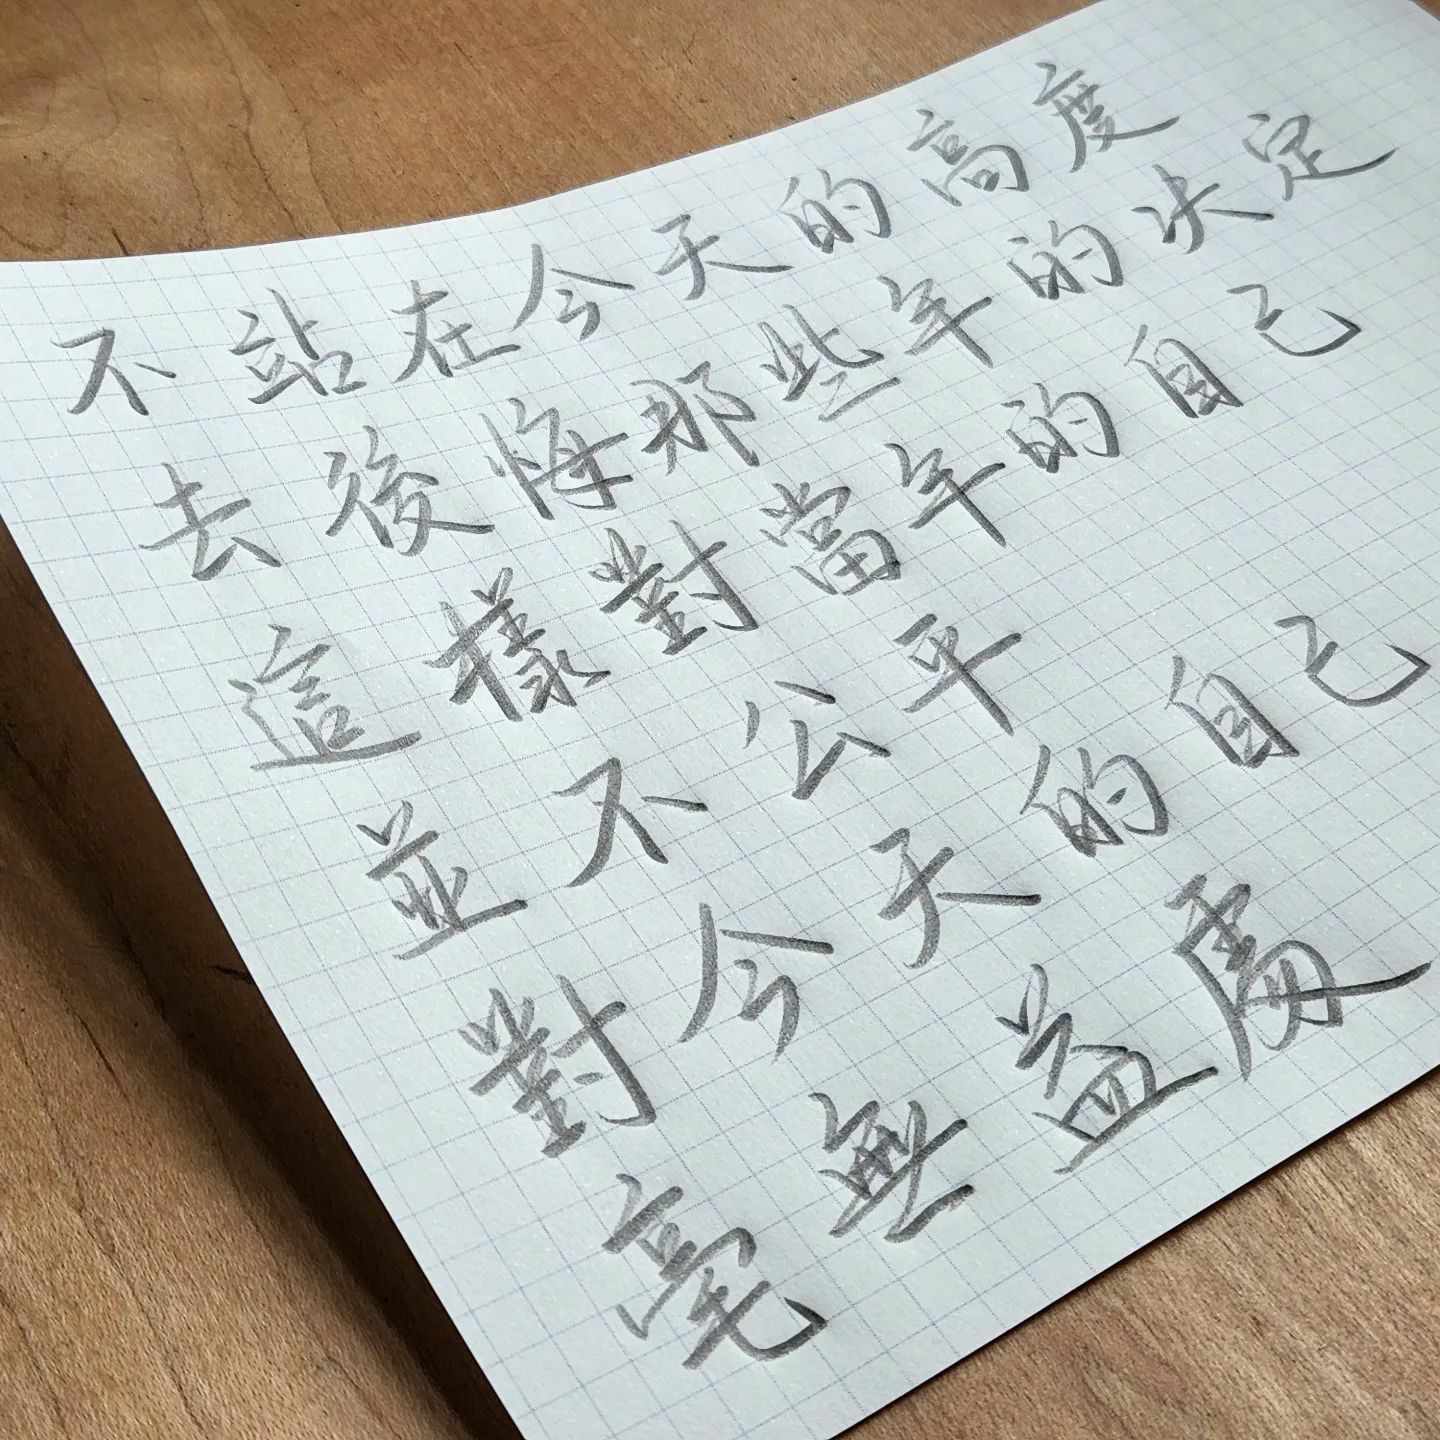 不站在今天的高度
去後悔那些年的決定
這樣對當年的自己
並不公平
對今天的自己
毫無益處